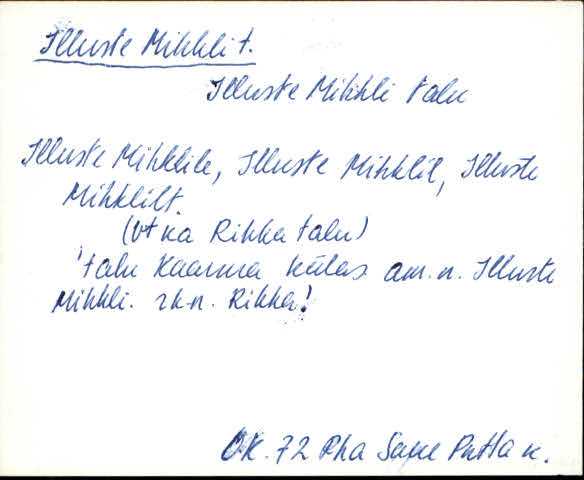 Illuste Mihkli t.
Illuste Mihkli talu
Illuste Mihklile, Illuste Mihklil, Illuste
Mihklilt.
(vt ka Rihka talu)
'talu Kaarma külas am. n. Illuste
Mihkli. rk. n. Rihka!
OK. 72 Pha Putla k.